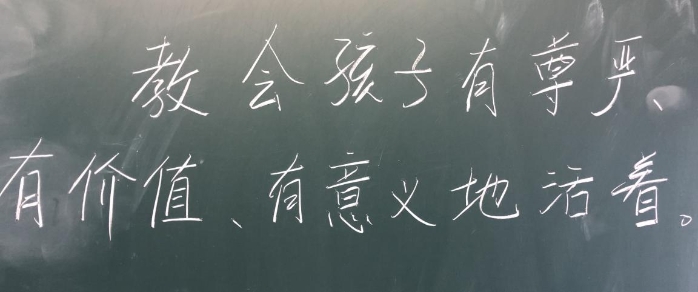 教会孩子有尊严、
有价值、有意义地活着。